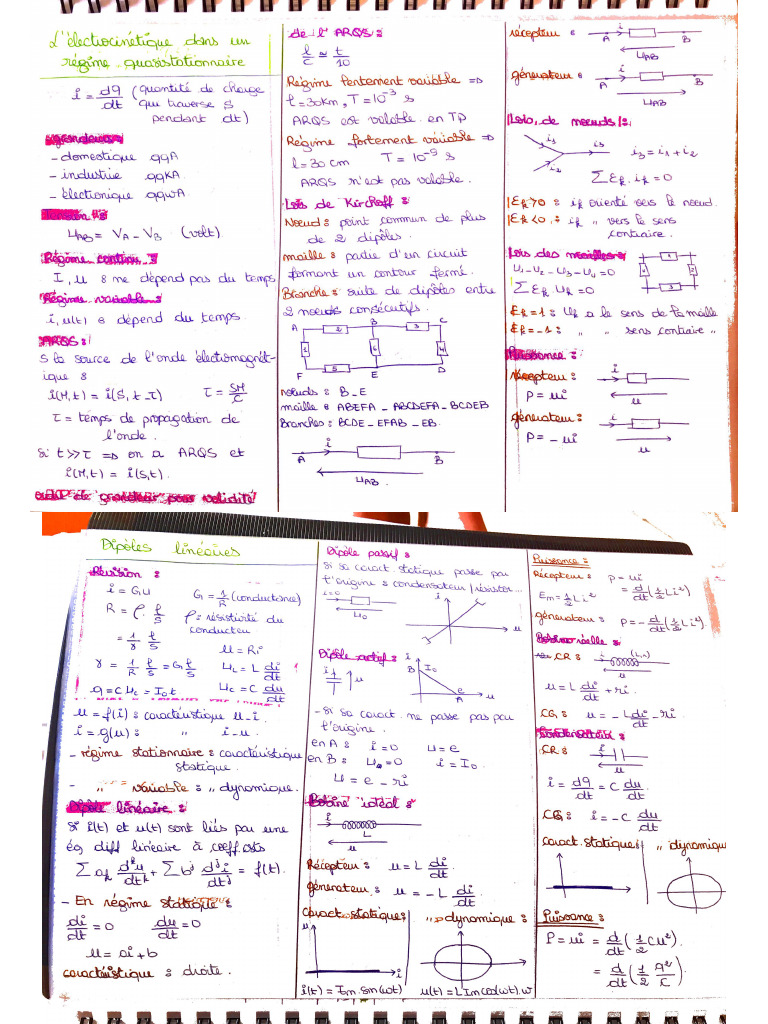 L'électrocinétique dans un
régime quasistationnaire
i = dq/dt (quantité de charge
qui traverse S
pendant dt)
- domestique qqA
- industrie qqKA
- électronique
Tension
u_AB = V_A - V_B (volt)
Régime continu :
I, u : ne dépend pas du temps
Régime variable :
i, u(t) : dépend du temps.
ARQS :
S la source de l'onde électromagnét-
ique :
i(M,t) = i(S, t-τ) τ = SM/C
τ = temps de propagation de
l'onde.
si t >> τ => on a ARQS et
i(M,t) = i(S,t).
ordre de grandeur pour validité
de l'ARQS :
l/c ≈ t/10
Régime lentement variable =>
l = 30km, T = 10^-3 s
ARQS est valable. en TP
Régime fortement variable =>
l = 30 cm T = 10^-9 s
ARQS n'est pas valable.
Lois de Kirchoff :
Noeud : point commun de plus
de 2 dipôles.
maille : partie d'un circuit
formant un contour fermé.
Branche : suite de dipôles entre
2 noeuds consécutifs.
A B C
1 2 3 4 5 6
F E D
noeuds : B - E
maille : ABEFA - ABCDEFA - BCDEB
Branches : BCDE - EFAB - EB.
A i B
u_AB
récepteur : A B
u_AB
générateur : A B
u_AB
Lois de noeuds :
i1 i2 i3 i3 = i1 + i2
Σ ε_k . i_k = 0
ε_k > 0 : i_k orienté vers le noeud.
ε_k < 0 : i_k " vers le sens
contraire.
Lois des mailles :
u1 - u2 - u3 - u4 = 0
Σ ε_k u_k = 0
ε_k = 1 : u_k a le sens de la maille
ε_k = -1 : " " sens contraire "
Puissance :
récepteur : i
P = ui u
générateur : i
P = - ui u
Dipôles linéaires
Révision :
i = Gu G = 1/R (conductance)
R = ρ . l/S ρ : résistivité du
conducteur
= 1/γ l/S u = Ri
γ = 1/R l/S = G l/S u_L = L di/dt
q = C u_C = I0 t u_C = C du/dt
u = f(i) : caractéristique u-i.
i = g(u) : " i-u.
- régime stationnaire : caractéristique
statique.
- " variable : " dynamique.
Dipôle linéaire :
Si i(t) et u(t) sont liés par une
éq diff linéaire à coeff csts
Σ a_k d^k u/dt^k + Σ b_j d^j i/dt^j = f(t).
- En régime statique :
di/dt = 0 du/dt = 0
u = ai + b
caractéristique : droite.
Dipôle passif :
si sa caract statique passe par
l'origine : condensateur / résistor...
i=0 i
u0 u
Dipôle actif : i
B I0
e A u
- si sa caract. ne passe pas par
l'origine.
en A : i = 0 u = e
en B : u = 0 i = I0
u = e - ri
Bobine idéal :
i
L
u
Récepteur : u = L di/dt
générateur : u = - L di/dt
caract statique : " dynamique :
u i
i(t) = Im sin(ωt) u(t) = L Im cos(ωt).ω
Puissance :
Récepteur : P = ui
Em = 1/2 Li² = d/dt (1/2 Li²)
générateur : P = - d/dt (1/2 Li²).
Bobine réelle :
CR : i (L,r)
u
u = L di/dt + ri.
CG : u = - L di/dt - ri
Condensateur :
CR : i
u
i = dq/dt = C du/dt
CG : i = - C du/dt
caract statique : " dynamique
Puissance :
P = ui = d/dt (1/2 Cu²).
= d/dt (1/2 q²/C)